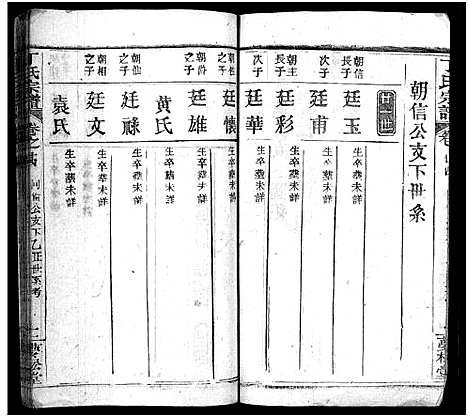 丁氏宗譜
卷
朝信公支下世系
廿世
朝信
長子
廷玉
生卒葬未詳
次子
廷甫
生卒葬未詳
朝主
長子
廷彩
生卒葬未詳
次子
廷華
生卒葬未詳
廷懷
生卒葬未詳
朝
之子
廷雄
生卒葬未詳
黃氏
生卒葬未詳
朝仙
之子
廷祿
生卒葬未詳
朝相
之子
廷文
生卒葬未詳
袁氏
生卒葬未詳
丁氏宗譜
卷之
公支下
世系考